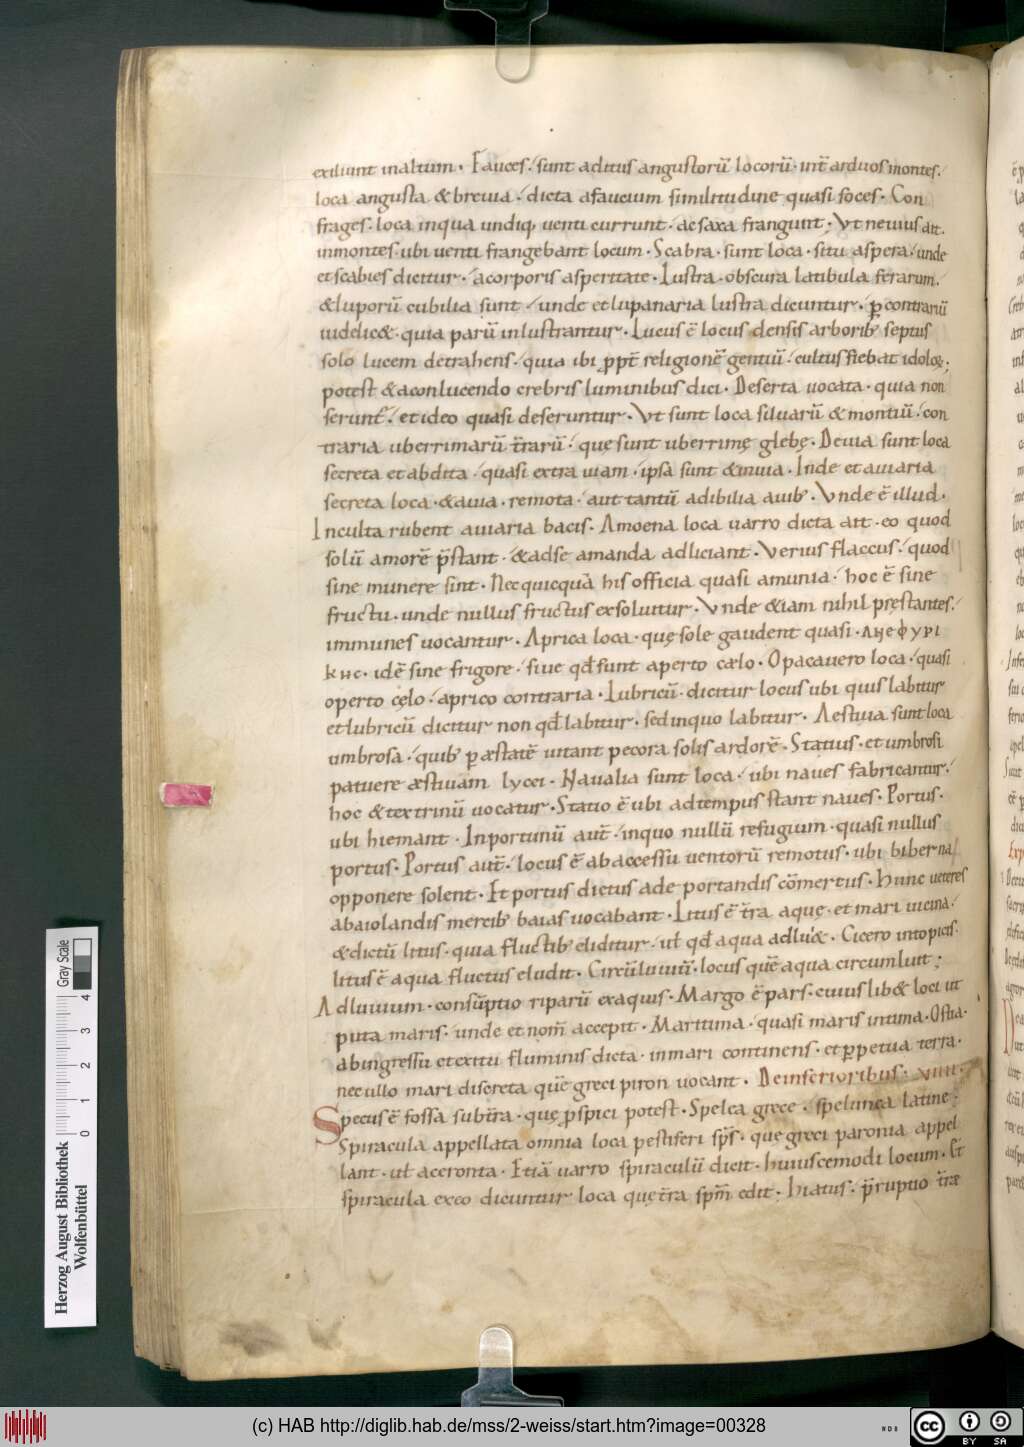 exiliunt inaltum · Fauces · sunt aditus angustorũ locorũ · int̃ arduos montes ·
loca angusta & brevia · dicta afaucium similitudine quasi foces · Con
frages · loca inqua undiq; venti currunt · acsaxa frangunt · Vt nevius ait ·
inmontes · ubi venti frangebant locum · Scabra · sunt loca · situ aspera · unde
etscabies dicitur · acorporis asperitate · Lustra · obscura latibula ferarum ·
& luporũ cubilia sunt · unde etlupanaria lustra dicuntur · ꝑcontrariũ
iuddic& · quia parũ inlustrantur · Lucus ẽ locus densis arborib; septus
solo lucem detrahens · quia ibi ꝓpt̃ religionẽ gentiũ · cultus fiebat idoloꝝ ·
potest & aconlucendo crebris luminibus dici · Deserta vocata · quia non
serunt̃ · et ideo quasi deseruntur · Vt sunt loca silvarũ & montiũ · con
traria uberrimarũ t̃rarũ · quę sunt uberrimę glebę · Devia sunt loca
secreta et abdita · quasi extra viam · ipsa sunt & invia · Inde et aviaria
secreta loca · & avia · remota · aut tantũ adibilia avib; · Vnde ẽ illud ·
Inculta rubent aviaria bacis · Amoena loca varro dicta ait · eo quod
solũ amorẽ p̃stant · & adse amanda adliciant · Verius flaccus · quod
sine munere sint · Nec quicquã his officia quasi amunia · hoc ẽ sine
fructu · unde nullus fructus exsolvitur · Vnde &iam nihil pręstantes ·
immunes vocantur · Aprica loca · quę sole gaudent quasi · ⲁⲛⲉⲫⲩⲣⲓ
ⲕⲏⲥ · idẽ sine frigore · sive qđ sunt aperto cælo · Opacavero loca · quasi
operto cęlo · aprico contraria · Lubricũ · dicitur locus ubi quis labitur
et lubricũ dicitur non qđ labitur · sed inquo labitur · Aestiva sunt loca
umbrosa · quib; ꝑ æstatẽ vitant pecora solis ardorẽ · Statius · et umbrosi
patuere æstivam lycei · Navalia sunt loca · ubi naves fabricantur ·
hoc & textrinũ vocatur · Statio ẽ ubi adtempus stant naves · Portus ·
ubi hiemant · Inportunũ aut̃ · inquo nullũ refugium · quasi nullus
portus · Portus aut̃ · locus ẽ ab accessu ventorũ remotus · ubi biberna
opponere solent · Et portus dictus ade portandis cõmertus · Hunc veteres
abaiolandis mercib; baias vocabant · Litus ẽ t̃ra aquę · et mari vicina ·
& dictũ litus · quia fluctib; eliditur · vł qđ aqua adlu& · Cicero intopicis ·
litus ẽ aqua fluctus eludit · Circũluviũ · locus quẽ aqua circumluit ;
Adluvium · consũptio riparũ exaquis · Margo ẽ pars · cuius lib& loci ut
puta maris · unde et nom̃ accepit · Maritima · quasi maris intima · Ostia ·
abingressu et exitu fluminis dicta · inmari continens · et ꝑpetua terra ·
necullo mari discreta quẽ greci piron vocant · Deinferioribus · xiiii ·
Specus ẽ fossa subt̃ra · quę ꝓspici potest · Spelea grece · spelunca latine ·
Spiracula appellata omnia loca pestiferi sp̃s · que greci paronia appel
lant · vł aceronta · Etiã varro spiraculũ dicit · huiuscemodi locum · Et
spiracula exeo dicuntur loca quę t̃ra spm̃ edit · Hiatus · p̃ruptio t̃ræ
Herzog August Bibliothek
Wolfenbüttel
0 1 2 3 4
Gray Scale
(c) HAB http://diglib.hab.de/mss/2-weiss/start.htm?image=00328
cc BY SA